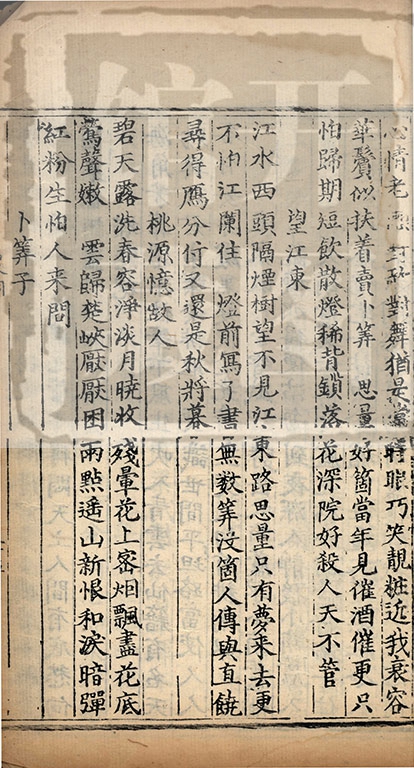 心情老對對舞猶是當時眼巧笑靚粧近我衰容
華鬢似扶着賣卜筭 思量好箇當年見催酒催更只
怕歸期短飲散燈稀背鎖落花深院好殺人天不管
望江東
江水西頭隔煙樹望不見江東路思量只有夢来去更
不怕江闌住 燈前寫了書無數筭沒箇人傳與直饒
尋得鴈分付又還是秋將暮
桃源憶故人
碧天露洗春容淨淡月曉收殘暈花上密烟飄盡花底
鶯聲嫩 雲歸楚峽厭厭困兩點遙山新恨和淚暗彈
紅粉生怕人来問
卜筭子